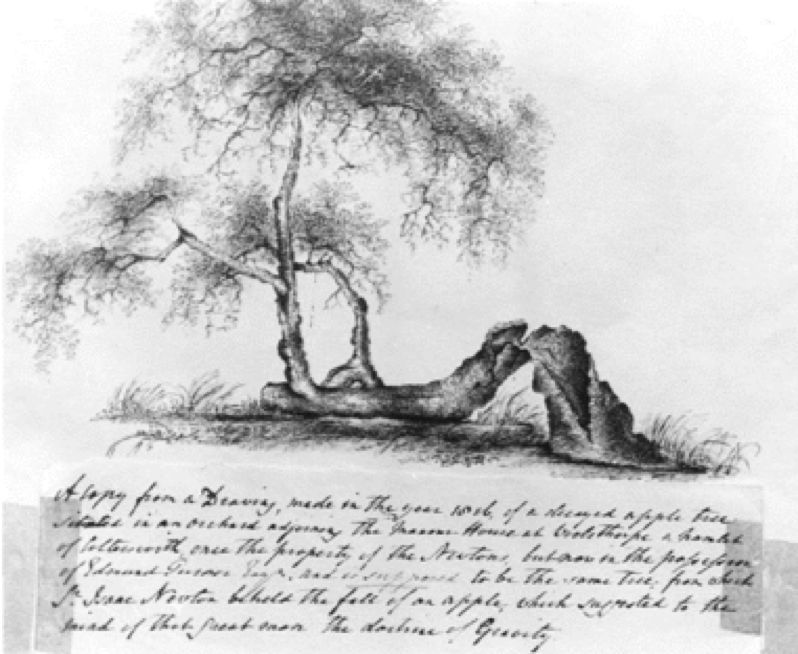 A Copy from a Drawing, made in the year of a decayed apple tree
situated in an orchard adjoining the Manor House at Woolsthorpe a hamlet
of Colterworth, once the property of the Newtons, but now in the possession
of Edmund Turnor Esqr. and is supposed to be the same tree, from which
Sr. Isaac Newton beheld the fall of an apple, which suggested to the
mind of that great man the doctrine of Gravity